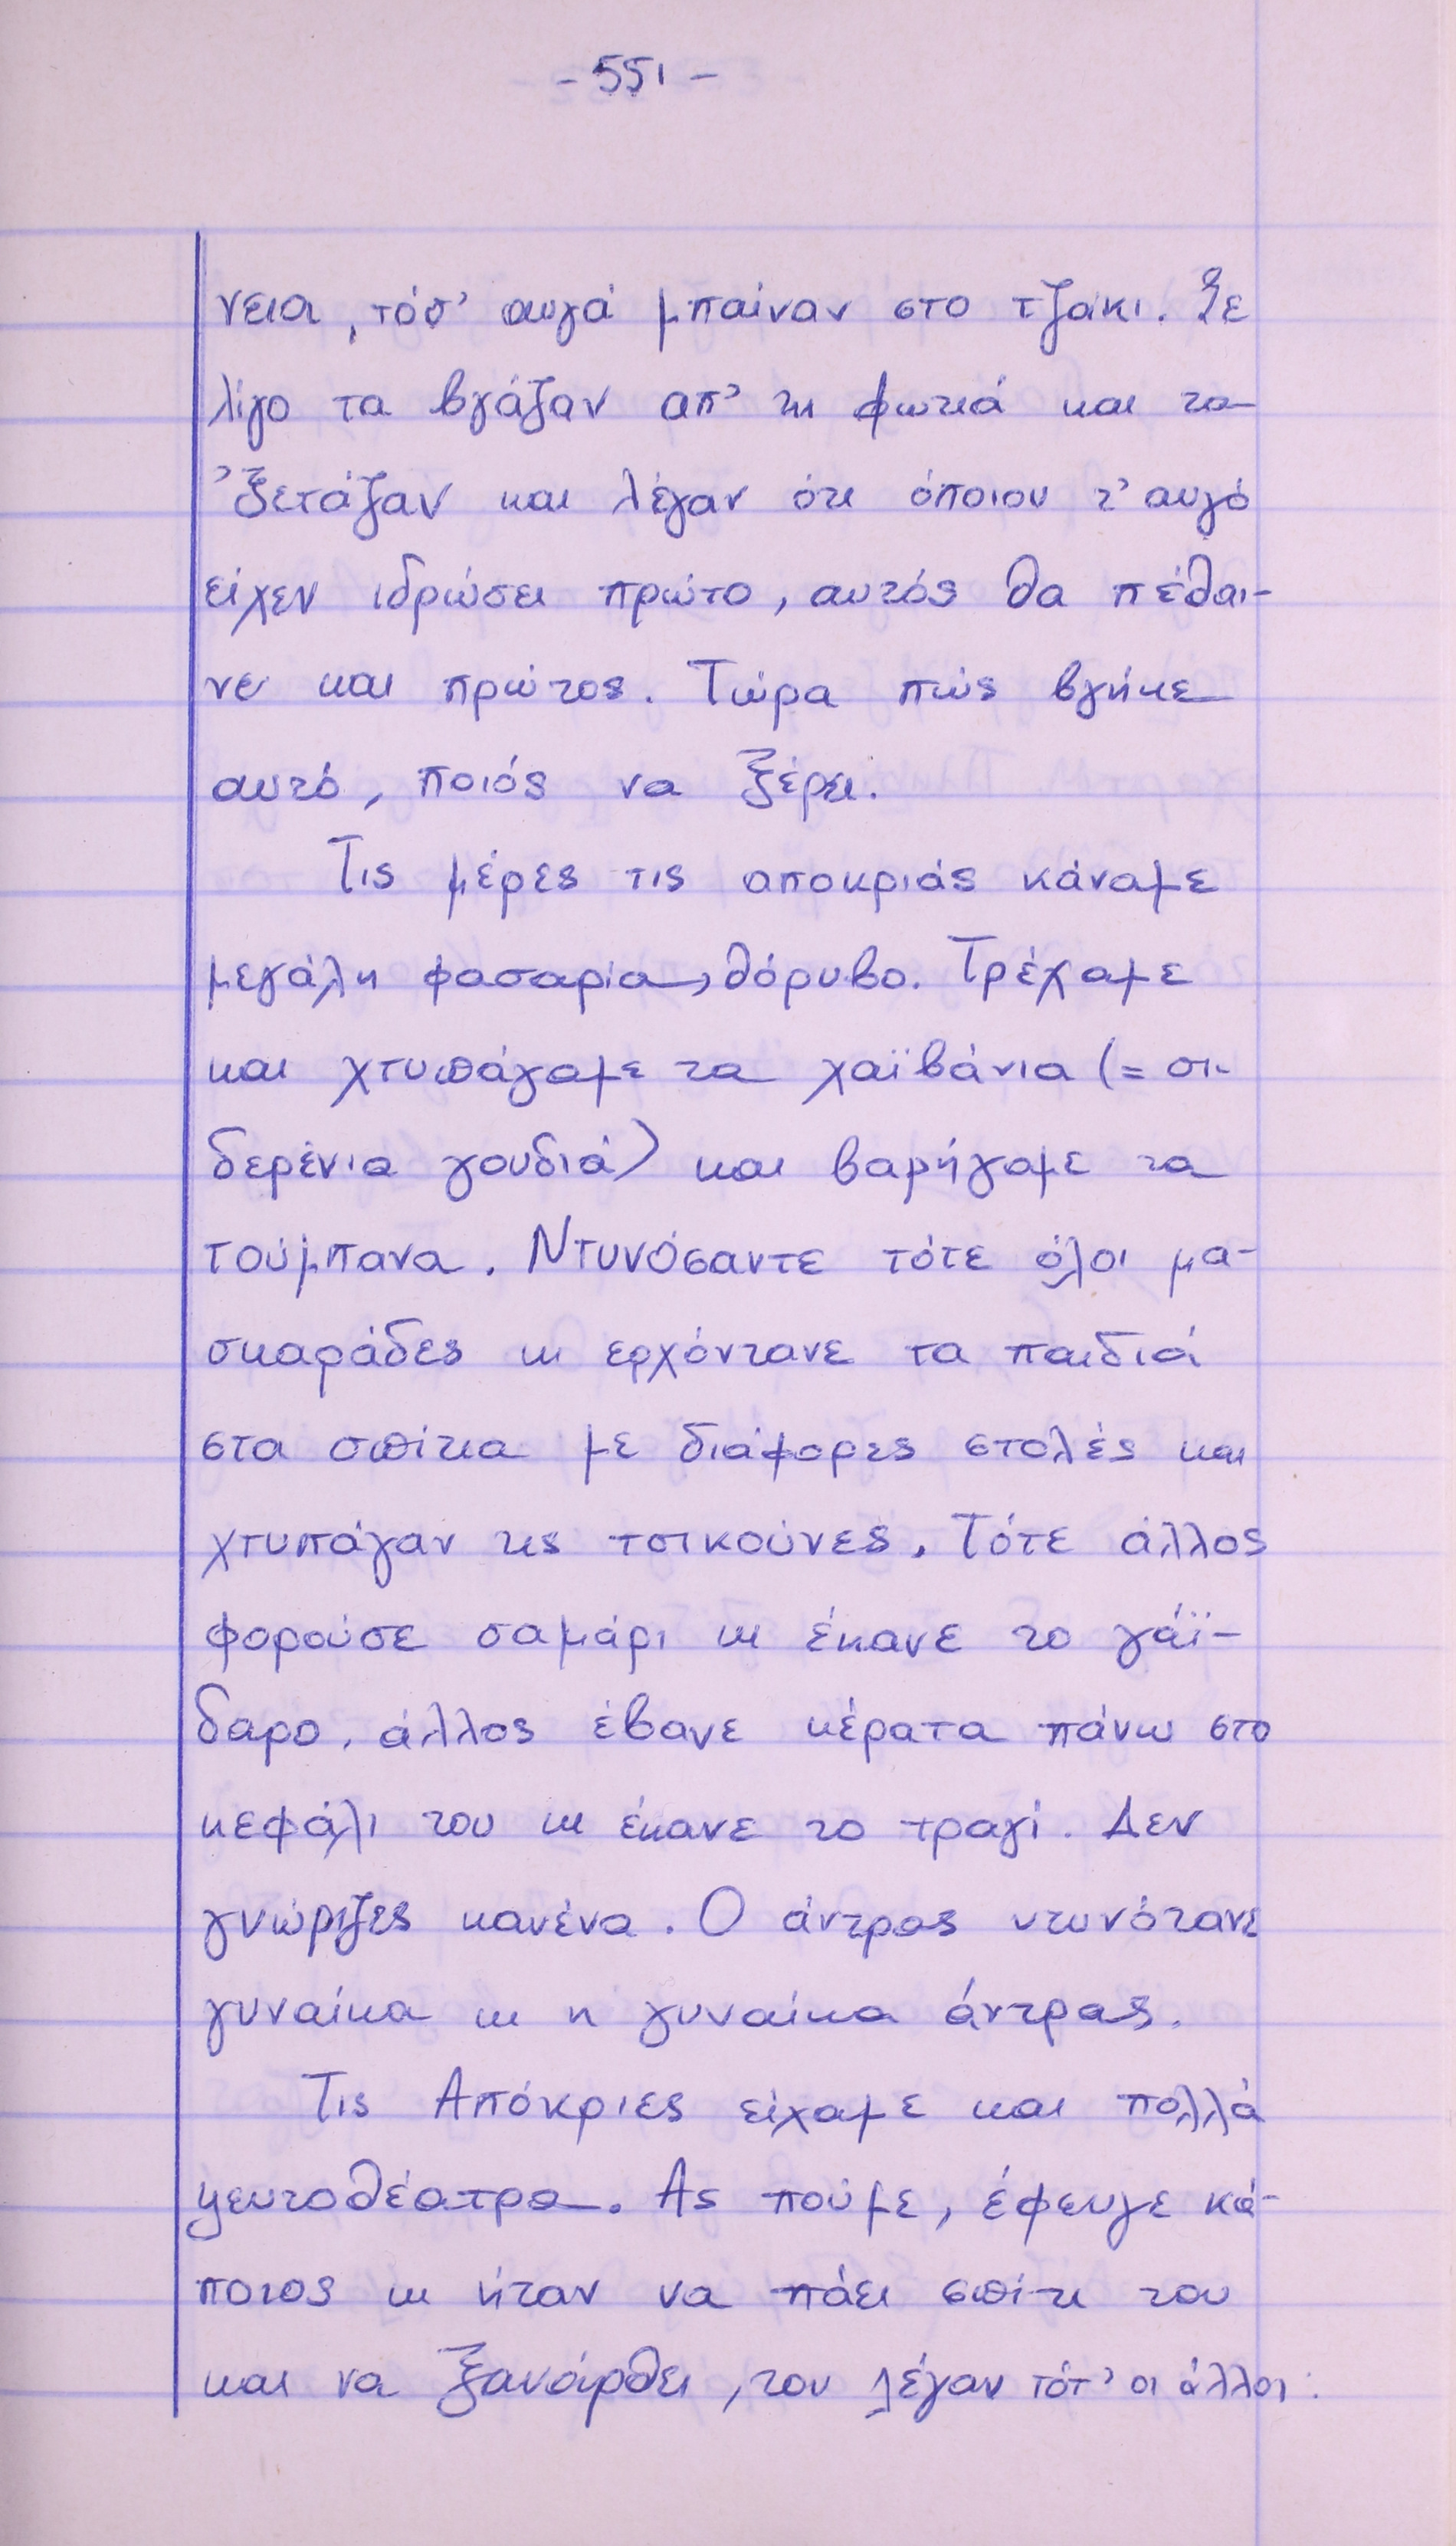 - 551 -
νεια, τόσ' αυγά μπαίναν στο τζάκι. Σε
λίγο τα βγάζαν απ' τη φωτιά και τα
'ξετάζαν και λέγαν ότι όποιου τ' αυγό
είχεν ιδρώσει πρώτο, αυτός θα πέθαι-
νε και πρώτος. Τώρα πώς βγήκε
αυτό, ποιός να ξέρει.
Τις μέρες τις αποκριάς κάναμε
μεγάλη φασαρία, θόρυβο. Τρέχαμε
και χτυπάγαμε τα χαϊβάνια (= σι-
δερένια γουδιά) και βαρήγαμε τα
τούμπανα. Ντυνόσαντε τότε όλοι μα-
σκαράδες κι ερχόντανε τα παιδιά
στα σπίτια με διάφορες στολές και
χτυπάγαν τις τσικούνες. Τότε άλλος
φορούσε σαμάρι κι έκανε το γάϊ-
δαρο, άλλος έβανε κέρατα πάνω στο
κεφάλι του κι έκανε το τραγί. Δεν
γνώριζες κανένα. Ο άντρας ντυνότανε
γυναίκα κι η γυναίκα άντρας.
Τις Απόκριες είχαμε και πολλά
ψευτοθέατρα. Ας πούμε, έφευγε κά-
ποιος κι ήταν να πάει σπίτι του
και να ξανάρθει, του λέγαν τότ' οι άλλοι: